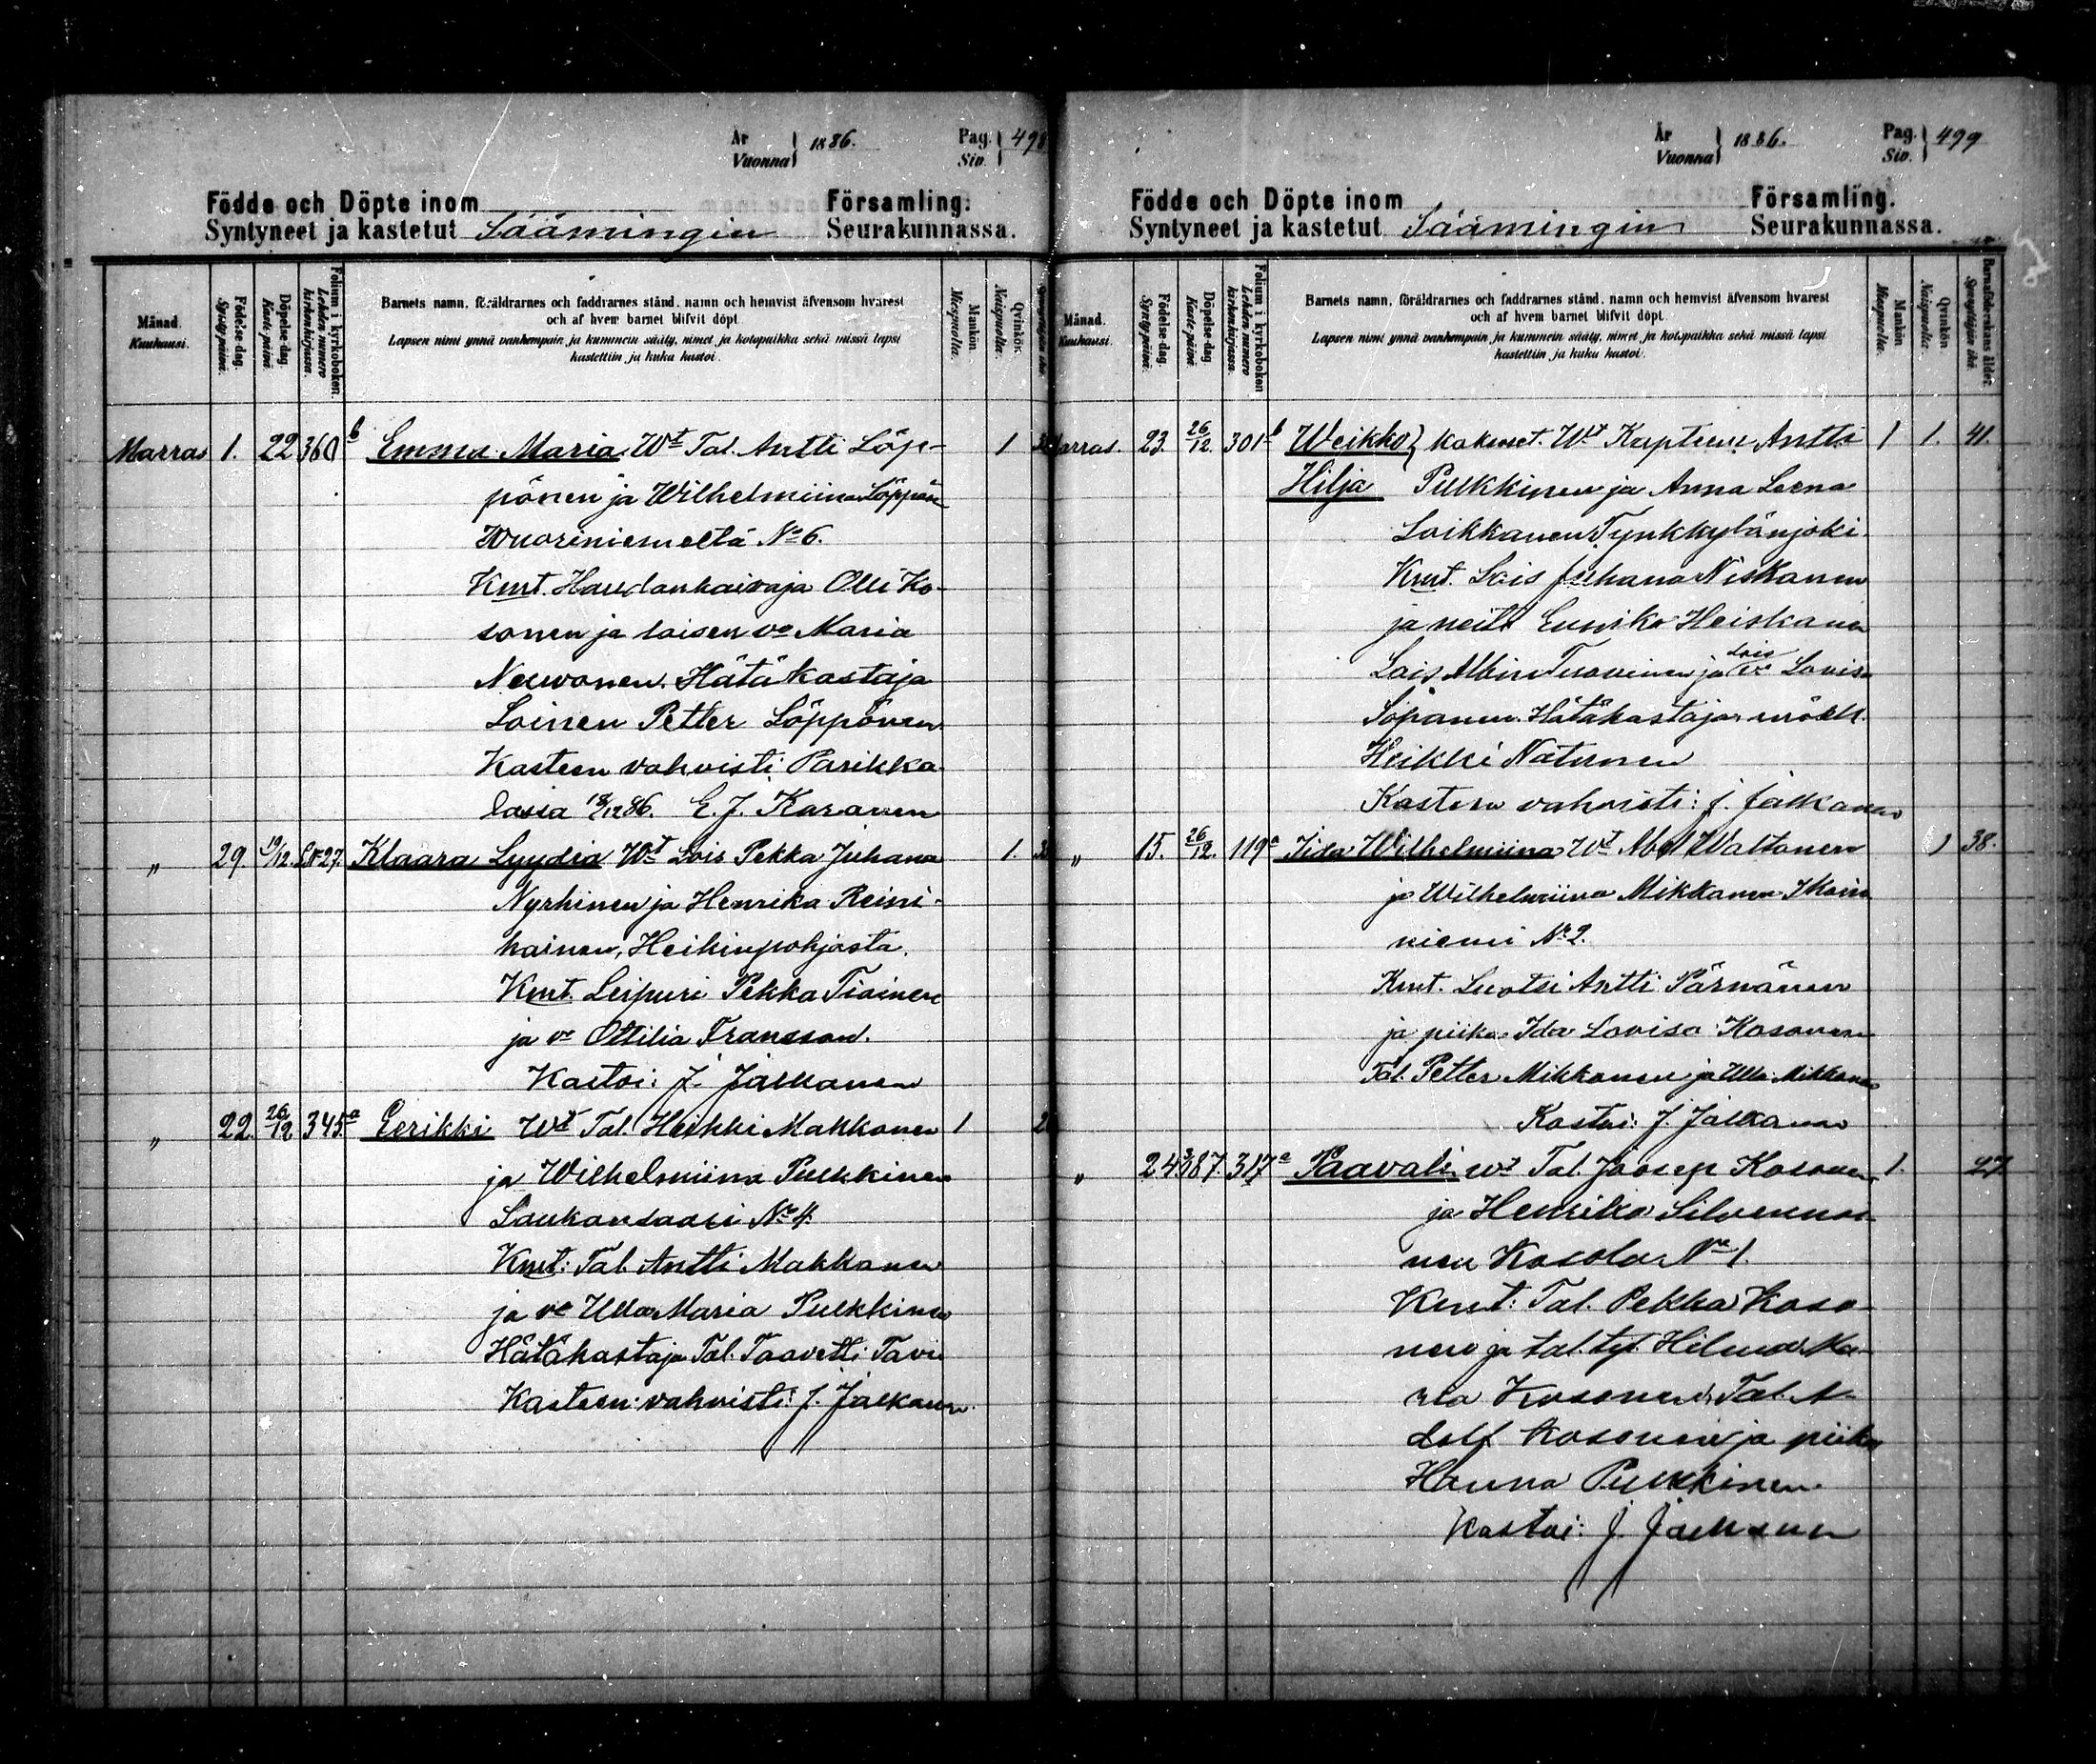 År
Vuonna } 1886.
Pag.
Siv. } 498
Födde och Döpte inom Församling:
Syntyneet ja kastetut Säämingin Seurakunnassa.
Månad. Kuukausi.
Födelse-dag. Syntypäivä.
Döpelse-dag. Kaste-päivä.
Folium i kyrkoboken. Lehden numero kirkonkirjassa.
Barnets namn, föräldrarnes och faddrarnes stånd, namn och hemvist äfvensom hvarest
och af hvem barnet blifvit döpt.
Lapsen nimi ynnä vanhempain ja kummein sääty, nimet ja kotopaikka sekä missä lapsi
kastettiin ja kuka kastoi.
Mankön. Miespuolia.
Qvinkön. Naispuolia.
Marras 1. 22 360 b Emma Maria Wt Tal. Antti Löp-
pönen ja Wilhelmiina Löppön
Wuoriniemeltä No 6.
Kmt. Haudankaivaja Olli Ko-
sonen ja loisen vo Maria
Neuvonen. Hätäkastaja
Loinen Petter Löppönen
Kasteen vahvisti Parikka-
lassa 18/12 86. E. J. Karanen
" 29. 19/12. 27. Klaara Lyydia Wt Lois Pekka Juhana
Nyrhinen ja Henrika Reini-
kainen, Heikinpohjasta.
Kmt. Leipuri Pekka Tiainen
ja vo Ottilia Fransson.
Kastoi: J. Jalkanen
" 22. 26/12 345a Eerikki Wt Tal. Heikki Makkonen 1
ja Wilhelmiina Pulkkinen
Laukansaari No 4.
Kmt: Tal. Antti Makkonen
ja vo Ulla Maria Pulkkinen
Hätäkastaja Tal. Taavetti Tavi
Kasteen vahvisti J. Jalkanen.
År
Vuonna } 1886.
Pag.
Siv. } 499
Födde och Döpte inom Församling.
Syntyneet ja kastetut Säämingin Seurakunnassa.
Månad. Kuukausi.
Födelse-dag. Syntypäivä.
Döpelse-dag. Kaste-päivä.
Folium i kyrkoboken. Lehden numero kirkonkirjassa.
Barnets namn, föräldrarnes och faddrarnes stånd, namn och hemvist äfvensom hvarest
och af hvem barnet blifvit döpt.
Lapsen nimi ynnä vanhempain ja kummein sääty, nimet ja kotopaikka sekä missä lapsi
kastettiin ja kuka kastoi.
Mankön. Miespuolia.
Qvinkön. Naispuolia.
Barnaföderskans ålder. Synnyttäjän ikä.
Marras. 23. 26/12. 301b Weikko } kakset. Wt Kapteeni Antti 1 1. 41.
Hilja Pulkkinen ja Anna Leena
Loikkanen Tynkkylänjoki.
Kmt. Lois Juhana Niskanen
ja neiti Eevika Heiskanen
Lois Albin Turoinen ja Lois vo Lovisa
Sopanen. Hätäkastaja mökk.
Heikki Naturnen
Kasteen vahvisti: J. Jalkanen
" 15. 26/12. 119a Iida Wilhelmiina Wt Abel Waltonen 1 38.
ja Wilhelmiina Mikkonen Ikoin
niemi No 2.
Kmt. Luotsi Antti Pärnänen
ja piika Ida Lovisa Kosonen
Tal. Petter Mikkonen ja Ulla Mikkonen
Kastoi: J. Jalkanen
" 24 317a Paavali wt Tal. Joosep Kosonen 1. 27
ja Henrika Silvennoi-
nen Kosola No 1.
Kmt: Tal. Pekka Koso-
nen ja tal. tyt. Hilma Ma-
ria Kosonen, Tal. A-
dolf Kosonen ja piika
Hanna Pulkkinen.
Kastoi: J. Jalkanen